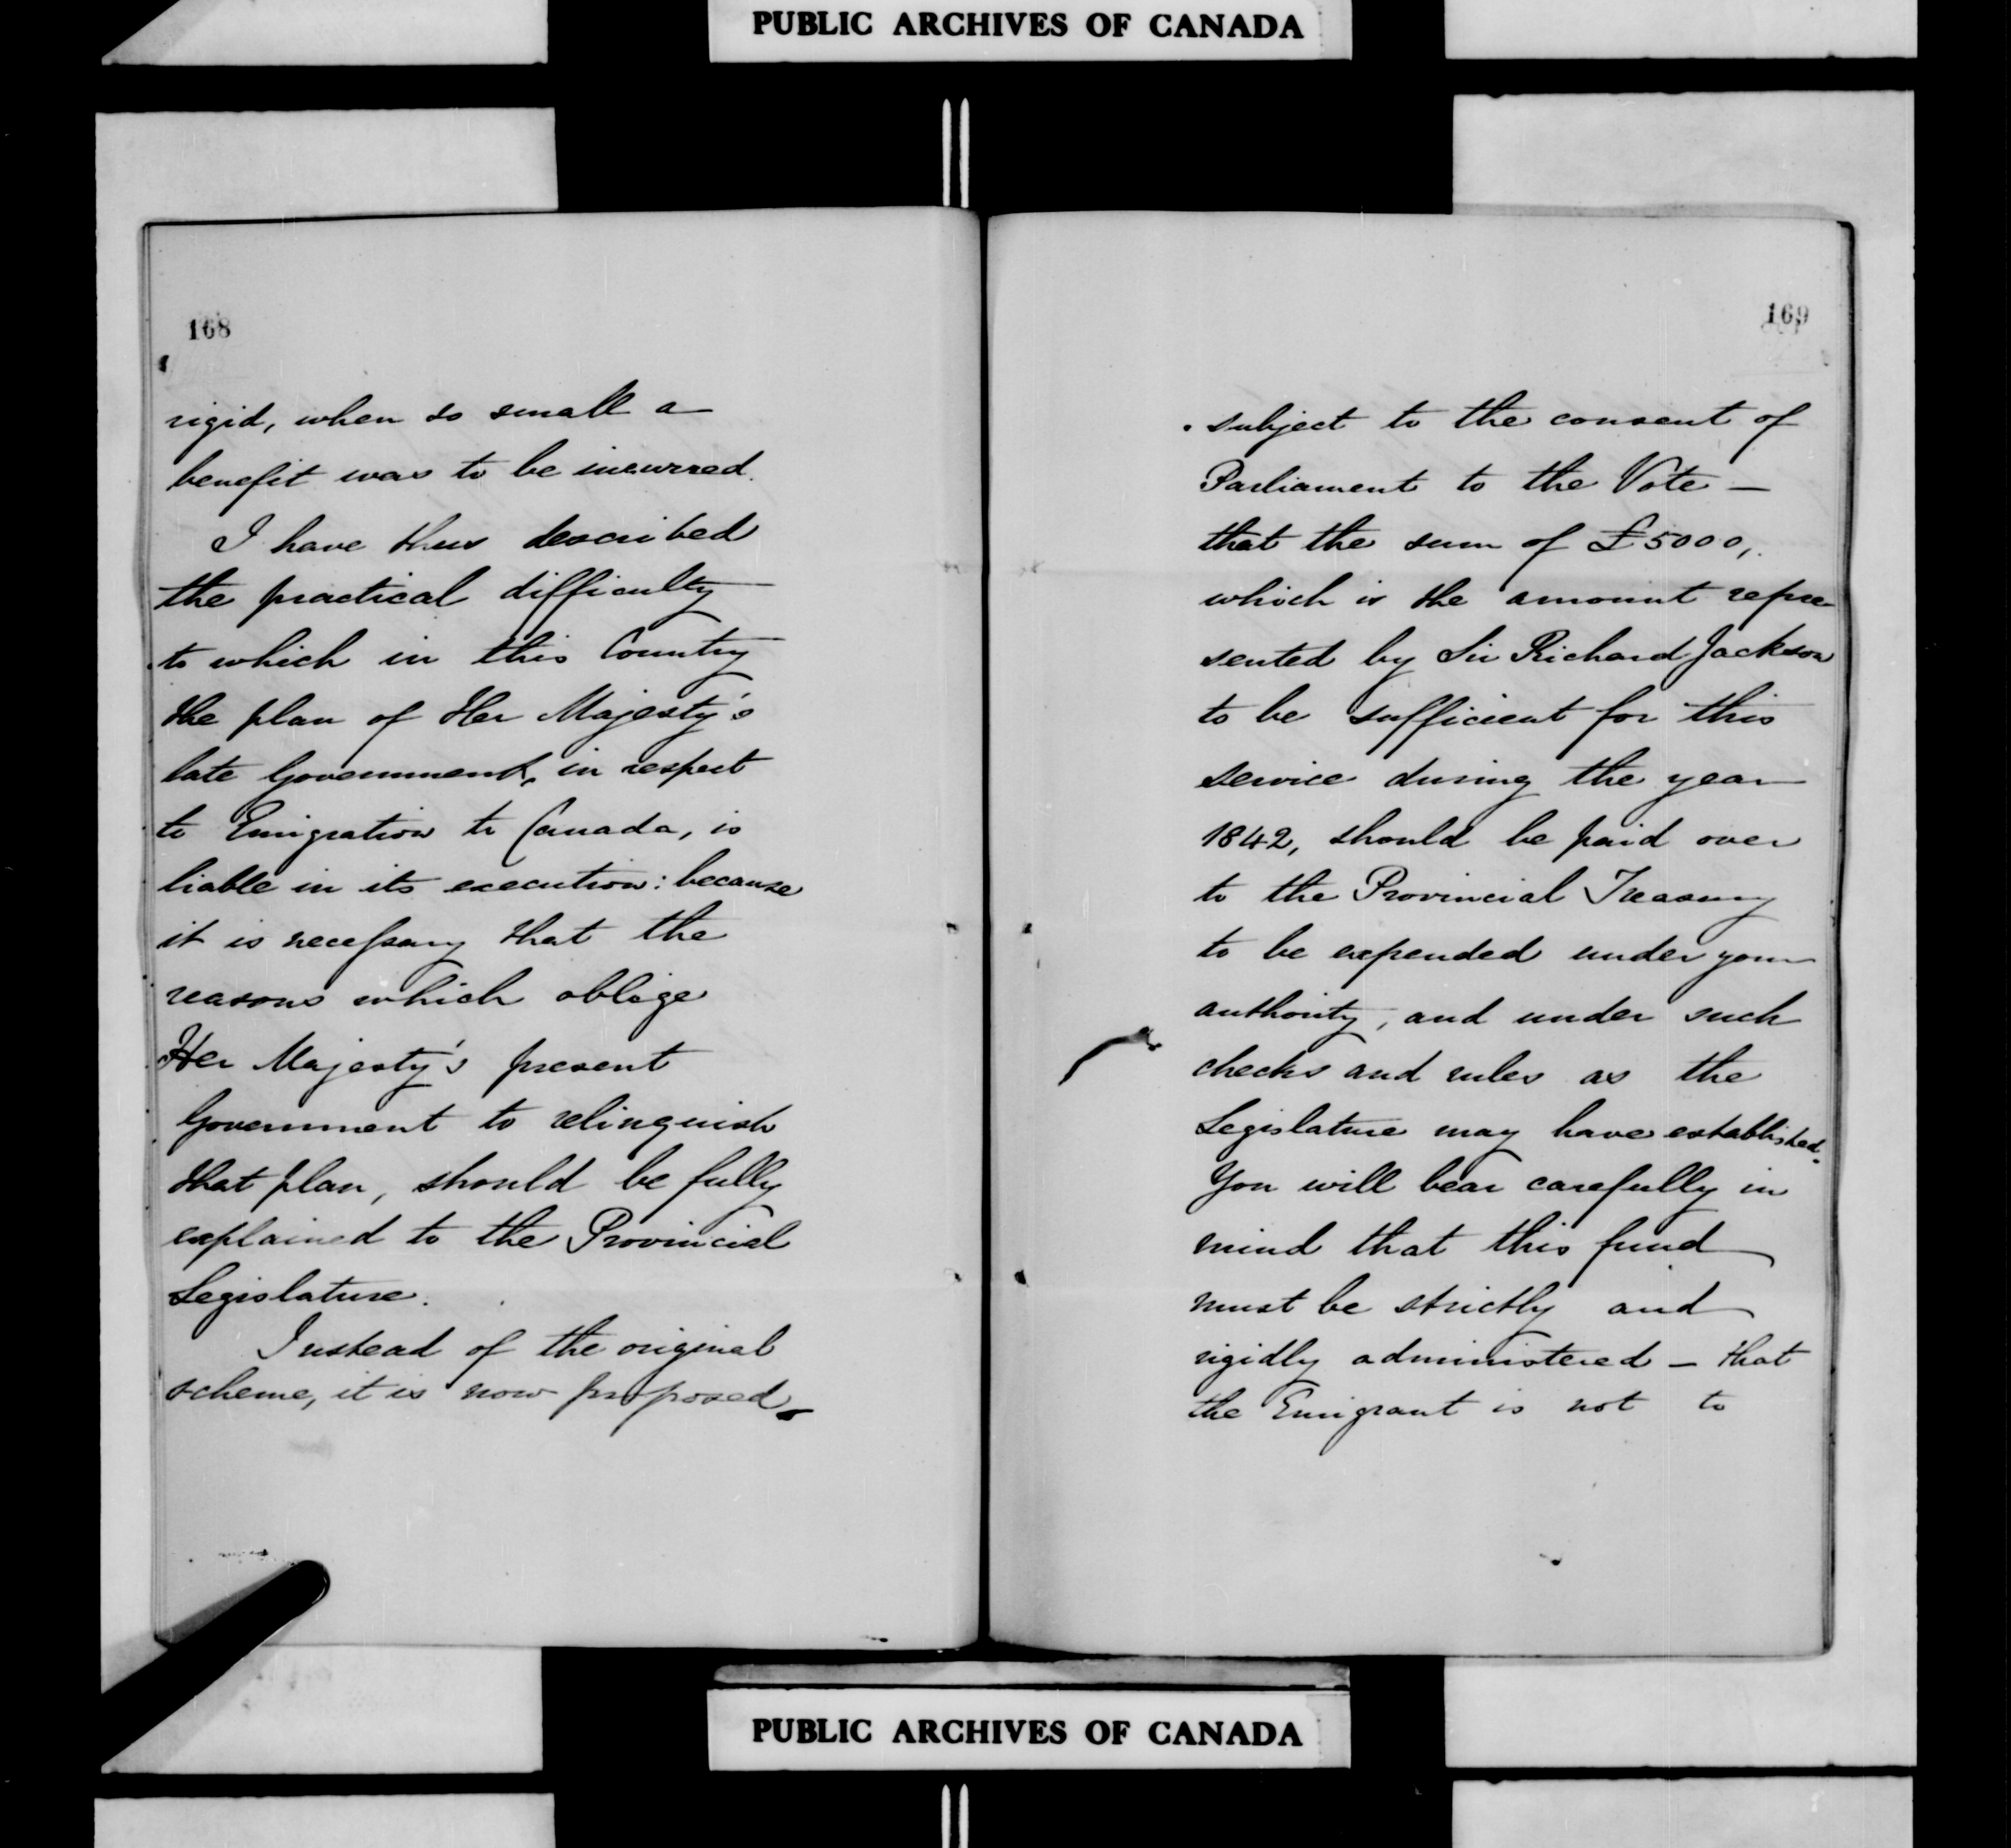 PUBLIC ARCHIVES OF CANADA
168
rigid, when so small a
benefit was to be incurred.
I have thus described
the practical difficulty
to which in this Country
the plan of Her Majesty's
late Government, in respect
to Emigration to Canada, is
liable in its execution: because
it is necessary that the
reasons which oblige
Her Majesty's present
Government to relinquish
that plan, should be fully
explained to the Provincial
Legislature.
Instead of the original
scheme, it is now proposed
169
subject to the consent of
Parliament to the Vote —
that the sum of £5000,
which is the amount repre-
sented by Sir Richard Jackson
to be sufficient for this
service during the year
1842, should be paid over
to the Provincial Treasury
to be expended under your
authority, and under such
checks and rules as the
Legislature may have established.
You will bear carefully in
mind that this fund
must be strictly and
rigidly administered — that
the Emigrant is not to
PUBLIC ARCHIVES OF CANADA